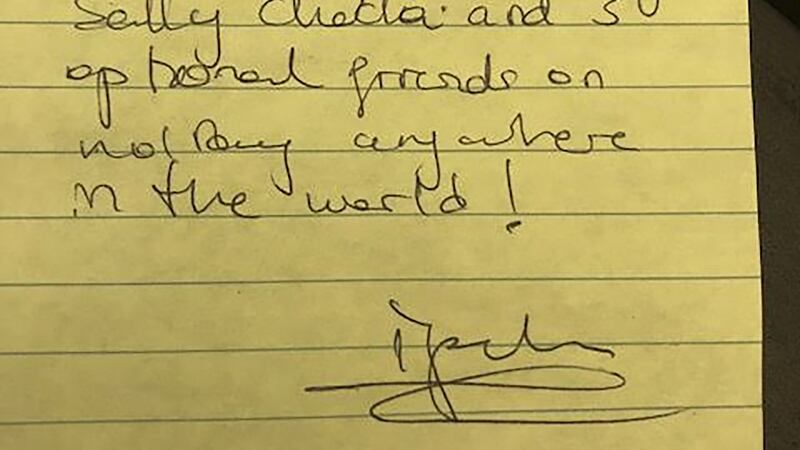 Sally Chedda and 30
optional friends on
holiday anywhere
in the world!